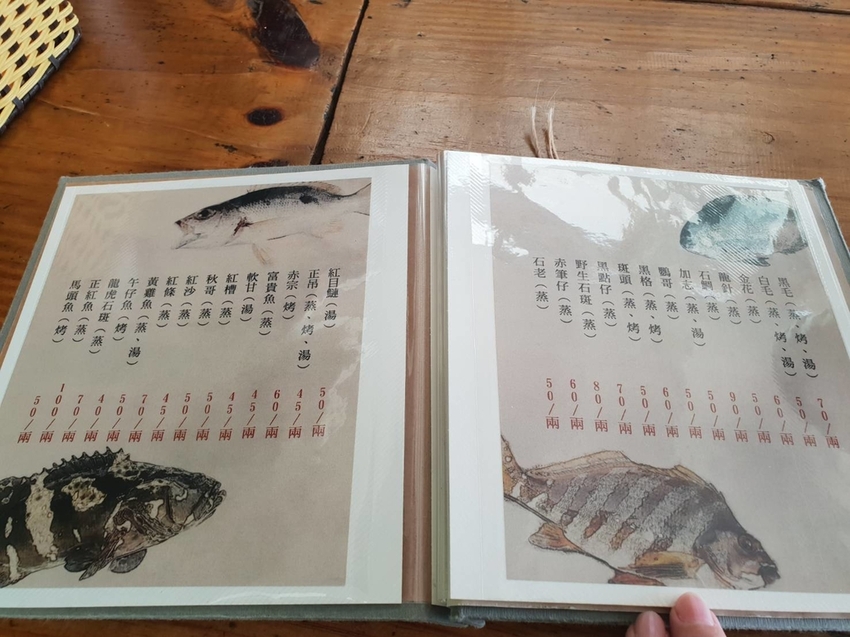 黑毛(蒸、烤、湯) 70/兩
白毛(蒸、烤、湯) 50/兩
金花(蒸) 60/兩
龍針(蒸) 50/兩
石鯛(蒸) 90/兩
加志(蒸、湯) 50/兩
鸚哥(蒸) 50/兩
黑格(蒸、烤) 60/兩
斑頭(蒸、烤) 50/兩
黑點仔(蒸) 70/兩
野生石斑(蒸) 80/兩
赤筆仔(蒸) 60/兩
石老(蒸) 50/兩
紅目鰱(湯) 50/兩
正吊(蒸、烤、湯) 45/兩
赤宗(烤) 60/兩
富貴魚(蒸) 45/兩
軟甘(湯) 45/兩
紅槽(蒸) 50/兩
秋哥(蒸) 50/兩
紅沙(蒸) 45/兩
紅條(蒸) 70/兩
黃雞魚(蒸、湯) 50/兩
午仔魚(烤) 40/兩
龍虎石斑(蒸) 70/兩
正紅魚(蒸) 100/兩
馬頭魚(烤) 50/兩